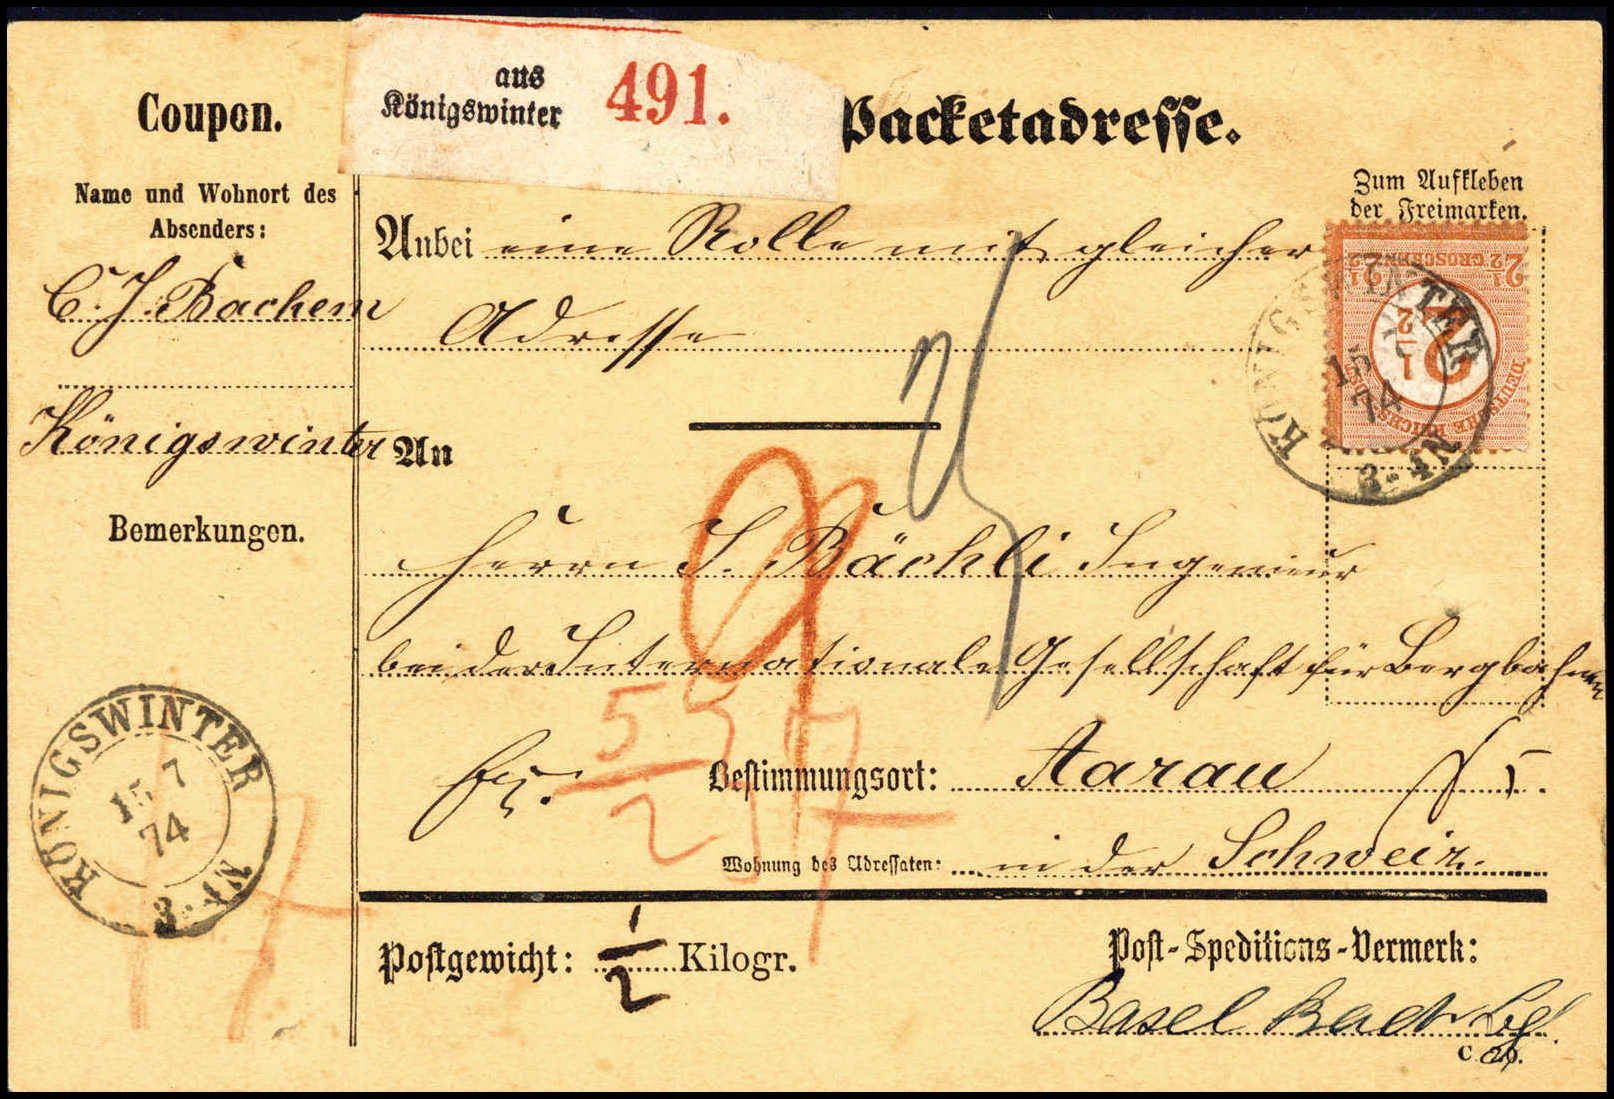 Coupon.
Name und Wohnort des
Absenders:
C. J. Bachem
Königswinter
Bemerkungen.
KÖNIGSWINTER
15 7
74
3-4N
aus
Königswinter 491.
Packetadresse.
Zum Aufkleben
der Freimarken.
Anbei eine Rolle mit gleicher
Adresse
2½ GROSCHEN 2½
2½
DEUTSCHE REICHS-POST
KÖNIGSWINTER
15 7
74
3-4N
An
Herrn J. Bächli Ingenieur
bei der Internationale Gesellschaft für Bergbahnen
55
2
fr.
Bestimmungsort: Aarau
Wohnung des Adressaten: in der Schweiz.
Postgewicht: ½ Kilogr.
Post-Speditions-Vermerk:
Basel Bad
C